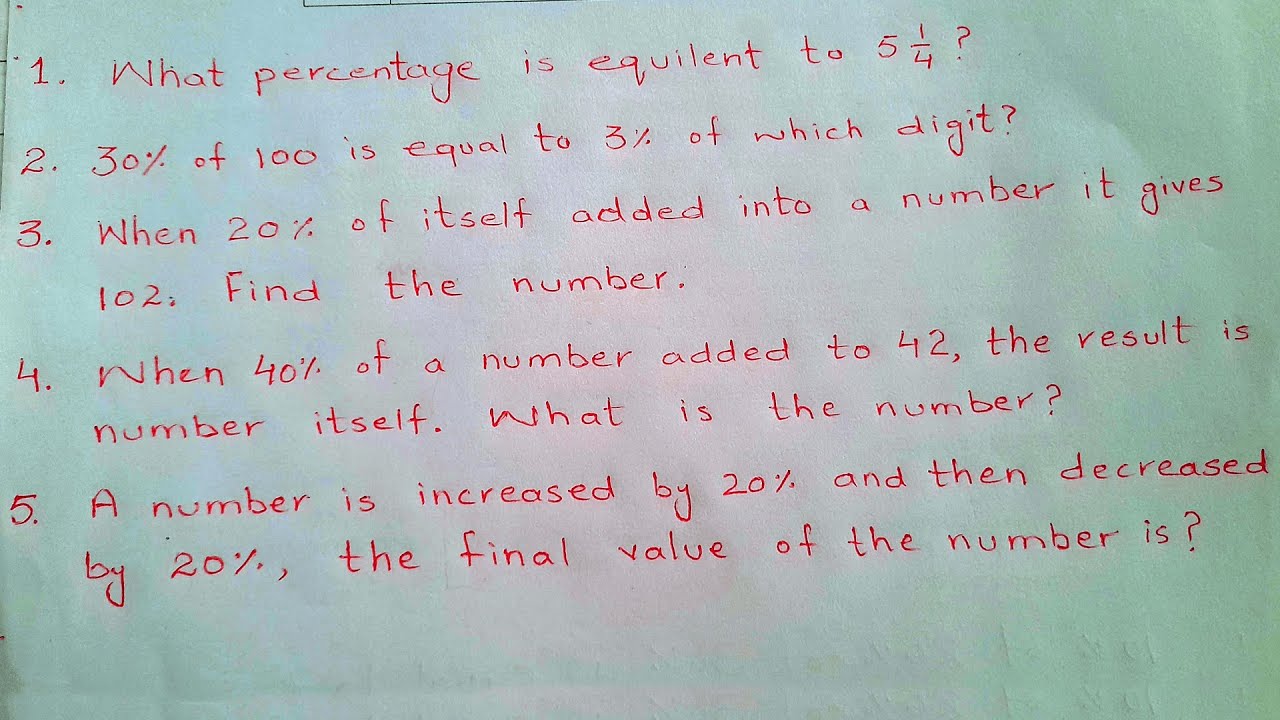 1. What percentage is equilent to 5 1/4 ?
2. 30% of 100 is equal to 3% of which digit?
3. When 20% of itself added into a number it gives
102. Find the number.
4. When 40% of a number added to 42, the result is
number itself. What is the number?
5. A number is increased by 20% and then decreased
by 20%, the final value of the number is?